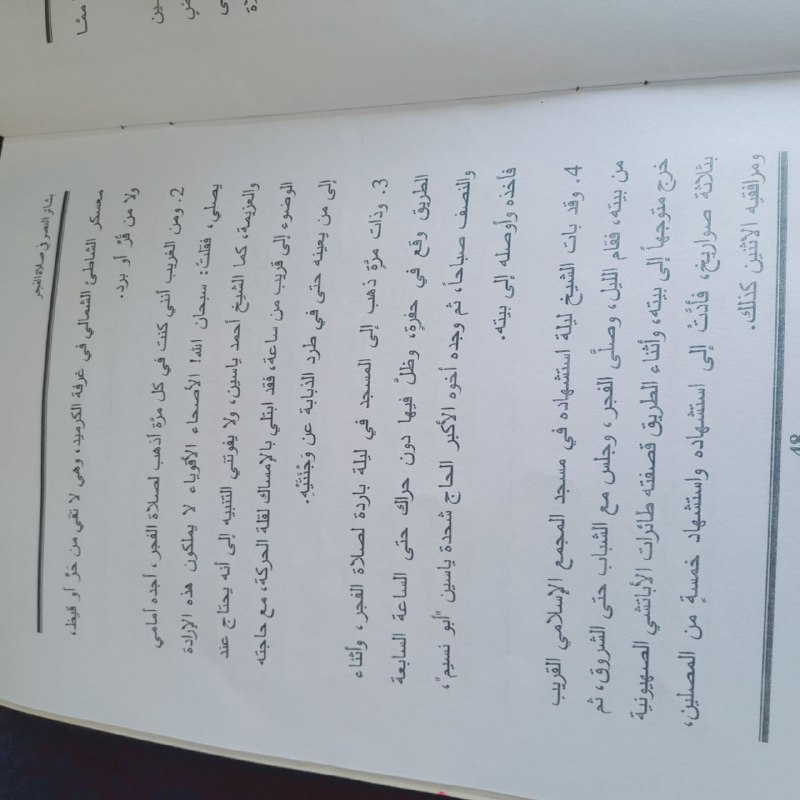 بشائر النصر في صلاة الفجر
معسكر الشاطئ الشمالي في غرفة الكرميد، وهي لا تقي من حَرٍّ أو قيظ،
ولا من قُرٍّ أو برد.
2. ومن الغريب أنني كنت في كل مرَّة أذهب لصلاة الفجر، أجده أمامي
يصلي، فقلت: سبحان الله! الأصحاء الأقوياء لا يملكون هذه الإرادة
والعزيمة، كما الشيخ أحمد ياسين، ولا يفوتني التنبيه إلى أنه يحتاج عند
الوضوء إلى قريب من ساعة، فقد ابتلي بالإمساك لقلة الحركة، مع حاجته
إلى من يعينه حتى في طرد الذبابة عن وَجْنَتَيْهِ.
3. وذات مرَّةٍ ذهب إلى المسجد في ليلة باردة لصلاة الفجر، وأثناء
الطريق وقع في حفرةٍ، وظلَّ فيها دون حراك حتى الساعة السابعة
والنصف صباحاً، ثم وجده أخوه الأكبر الحاج شحدة ياسين "أبو نسيم"،
فأخذه وأوصله إلى بيته.
4. وقد بات الشيخ ليلة استشهاده في مسجد المجمع الإسلامي القريب
من بيته، فقام الليل، وصلَّى الفجر، وجلس مع الشباب حتى الشروق، ثم
خرج متوجهاً إلى بيته، وأثناء الطريق قصفته طائرات الأباتشي الصهيونية
بثلاثة صواريخ، فأدَّتْ إلى استشهاده واستشهاد خمسةٍ من المصلين،
ومرافقيه الاثنين كذلك.
48